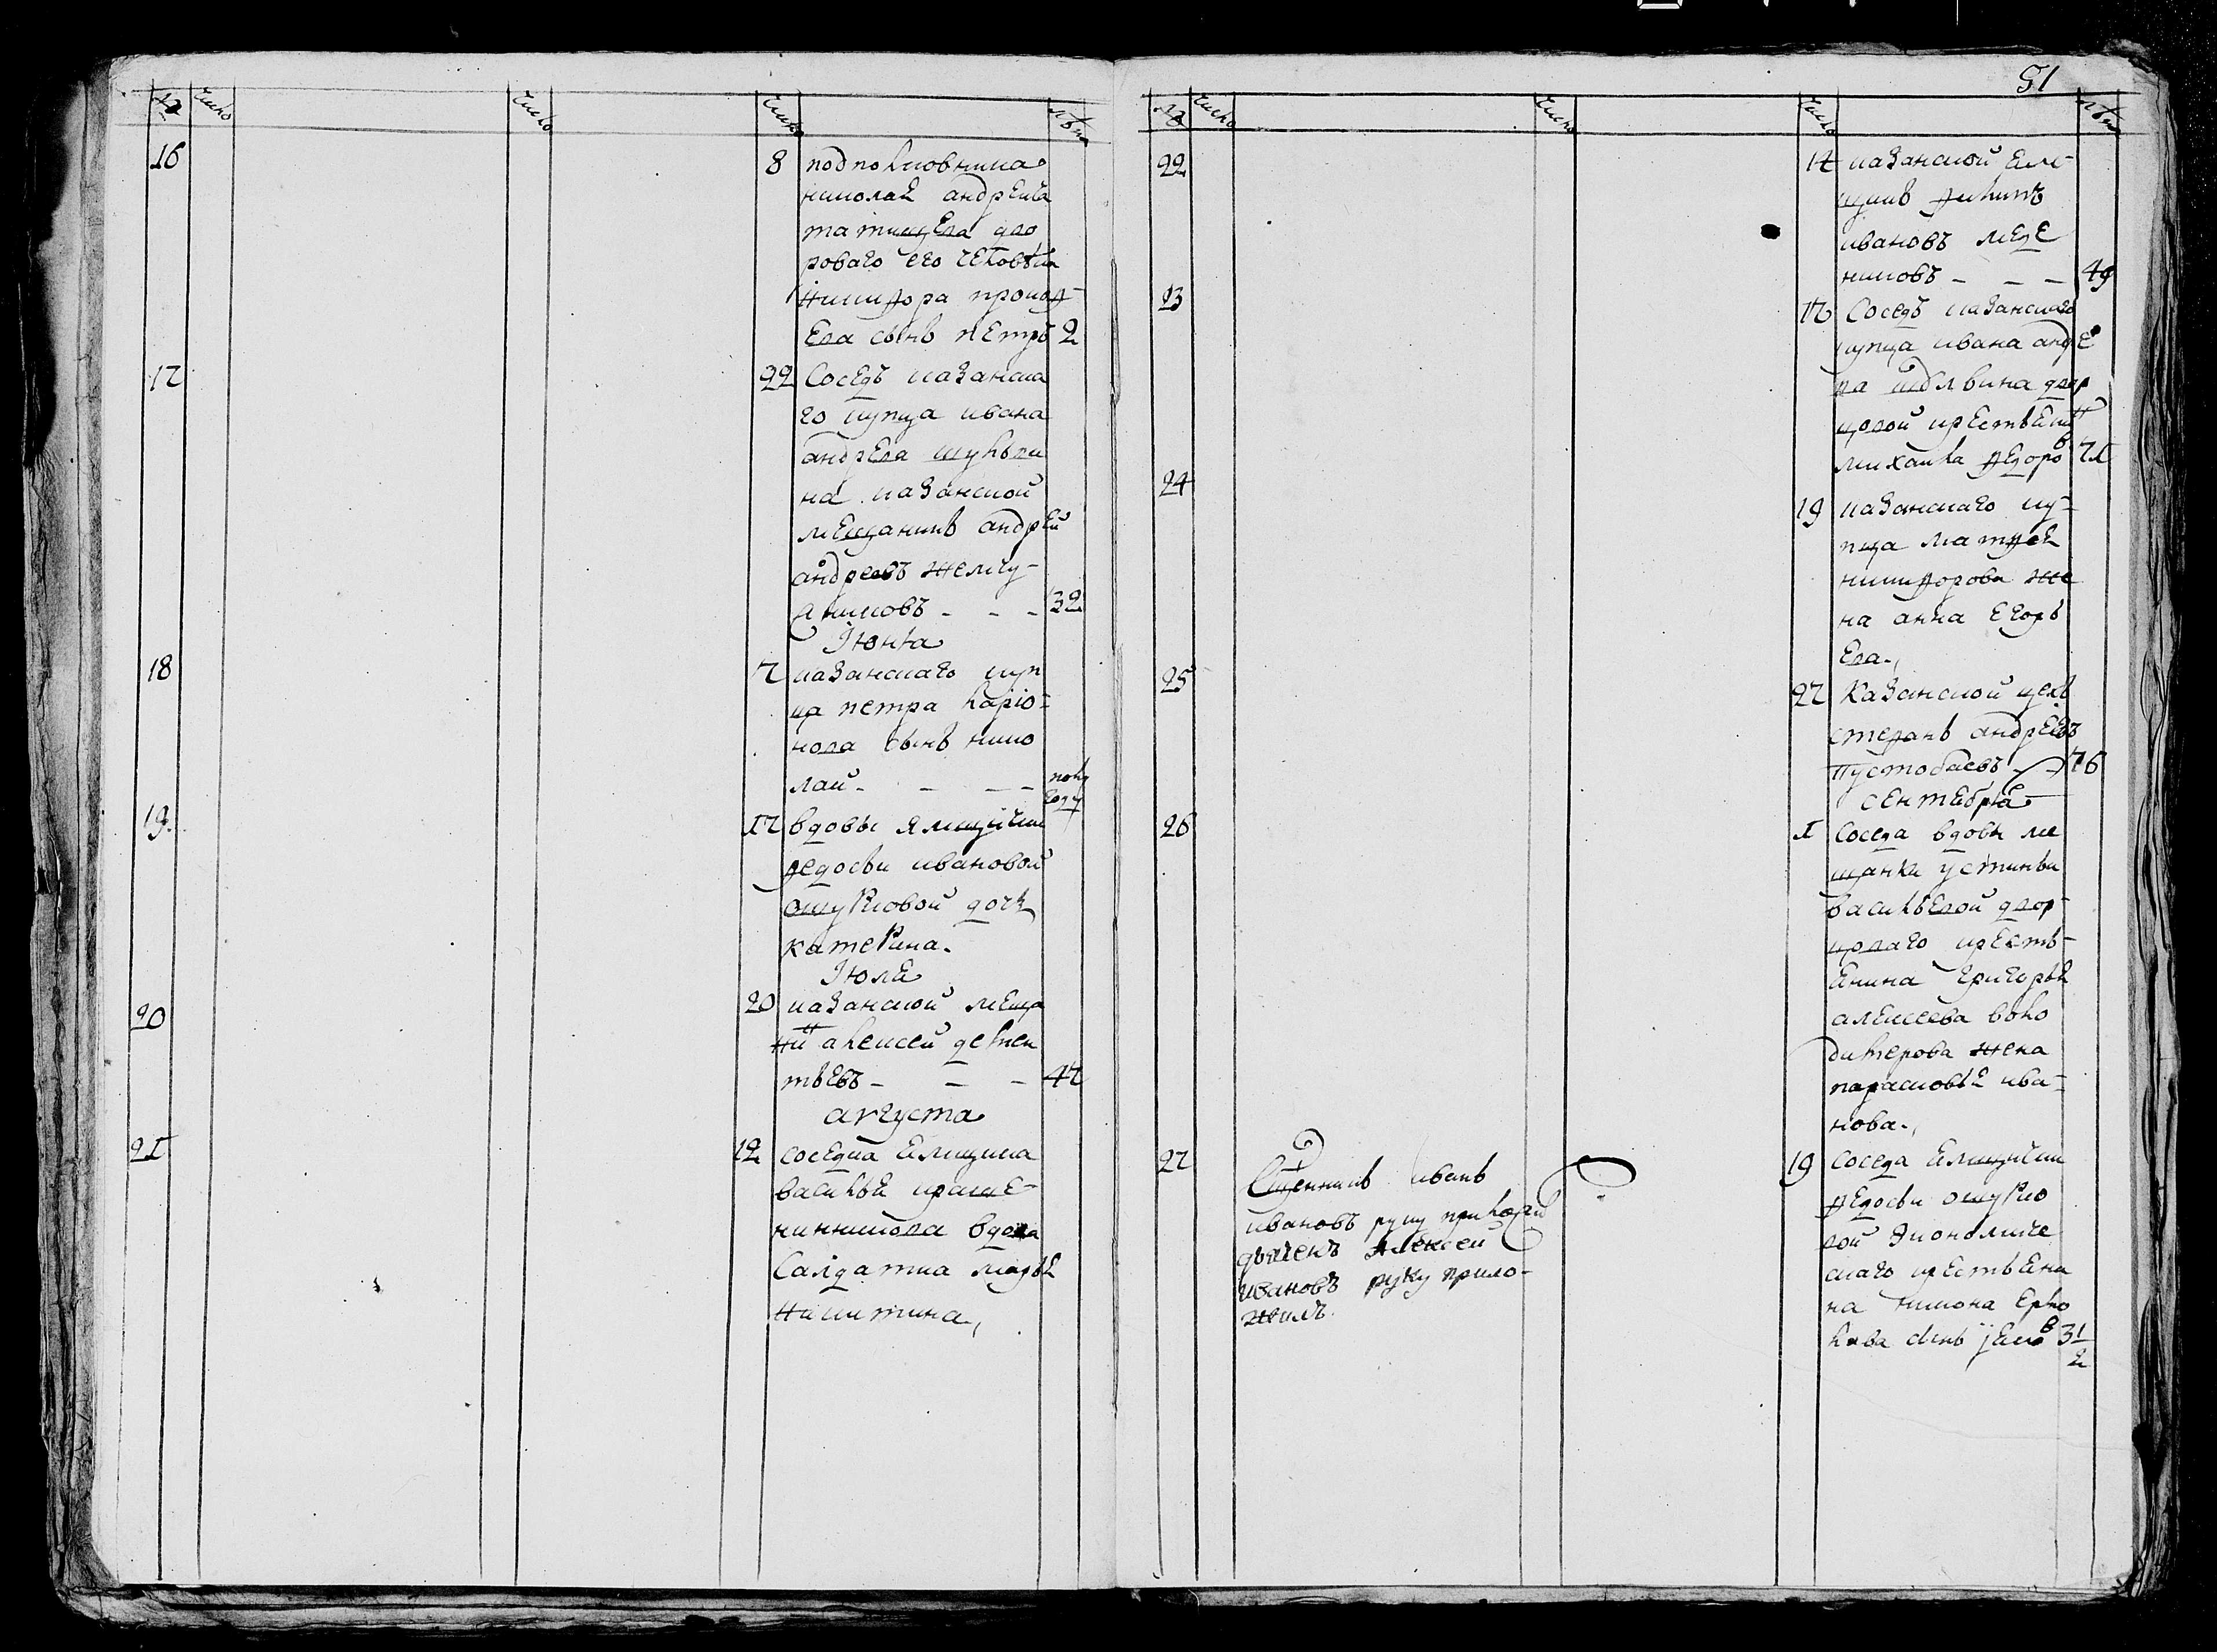 51
№ Число Число Число лета
16 8 подполковника
николая андреича
татищева дво
роваго его человека
никифора прокоф-
ева сынъ петръ 2
17 22 Соседъ казанска
го купца ивана
андреева шульги
на казанской
мещанинъ андрей
андреевъ жемчу-
жниковъ - - - 32
Июня
18 7 казанскаго куп
ца петра ларіо-
нова сынъ нико
лай - - - - полу
году
19 17 вдовы ямщички
федосьи ивановой
ошурковой дочь
катерина.
Июля
20 20 казанской меща
нинъ алексей
тьевъ - - - 47
августа
21 12 соседка ямщика
василья краше-
нинникова вдова
Салдатка марья
никитина,
№ Число Число Число лета
22 17 казанской ям-
щикъ филипъ
ивановъ меде
никовъ - - - 49
23 17 Соседъ казанскаго
купца ивана андрее
ва двор
цовой крестьенинъ
михаила федоровъ 71
24 19 казанскаго ку-
пца матфея
никифорова же
на анна егорь
ева.,
25 27 Казанской цехъ
стефанъ андреевъ
Пустобаевъ - 76
сентебря
26 1 соседа вдовы ме
щанки устиньи
васильевой двор-
цоваго кресть-
янина григорья
алексеева воло
димерова жена
парасковья ива-
нова.,
27 19 соседа ямщички
федосьи ошурко
вой экономиче
скаго крестьяни
на
сынъ яковъ 3 1/2
Сщенникъ иванъ
ивановъ руку приложилъ
дьяченъ Алексеи
ивановъ руку прило-
жилъ.